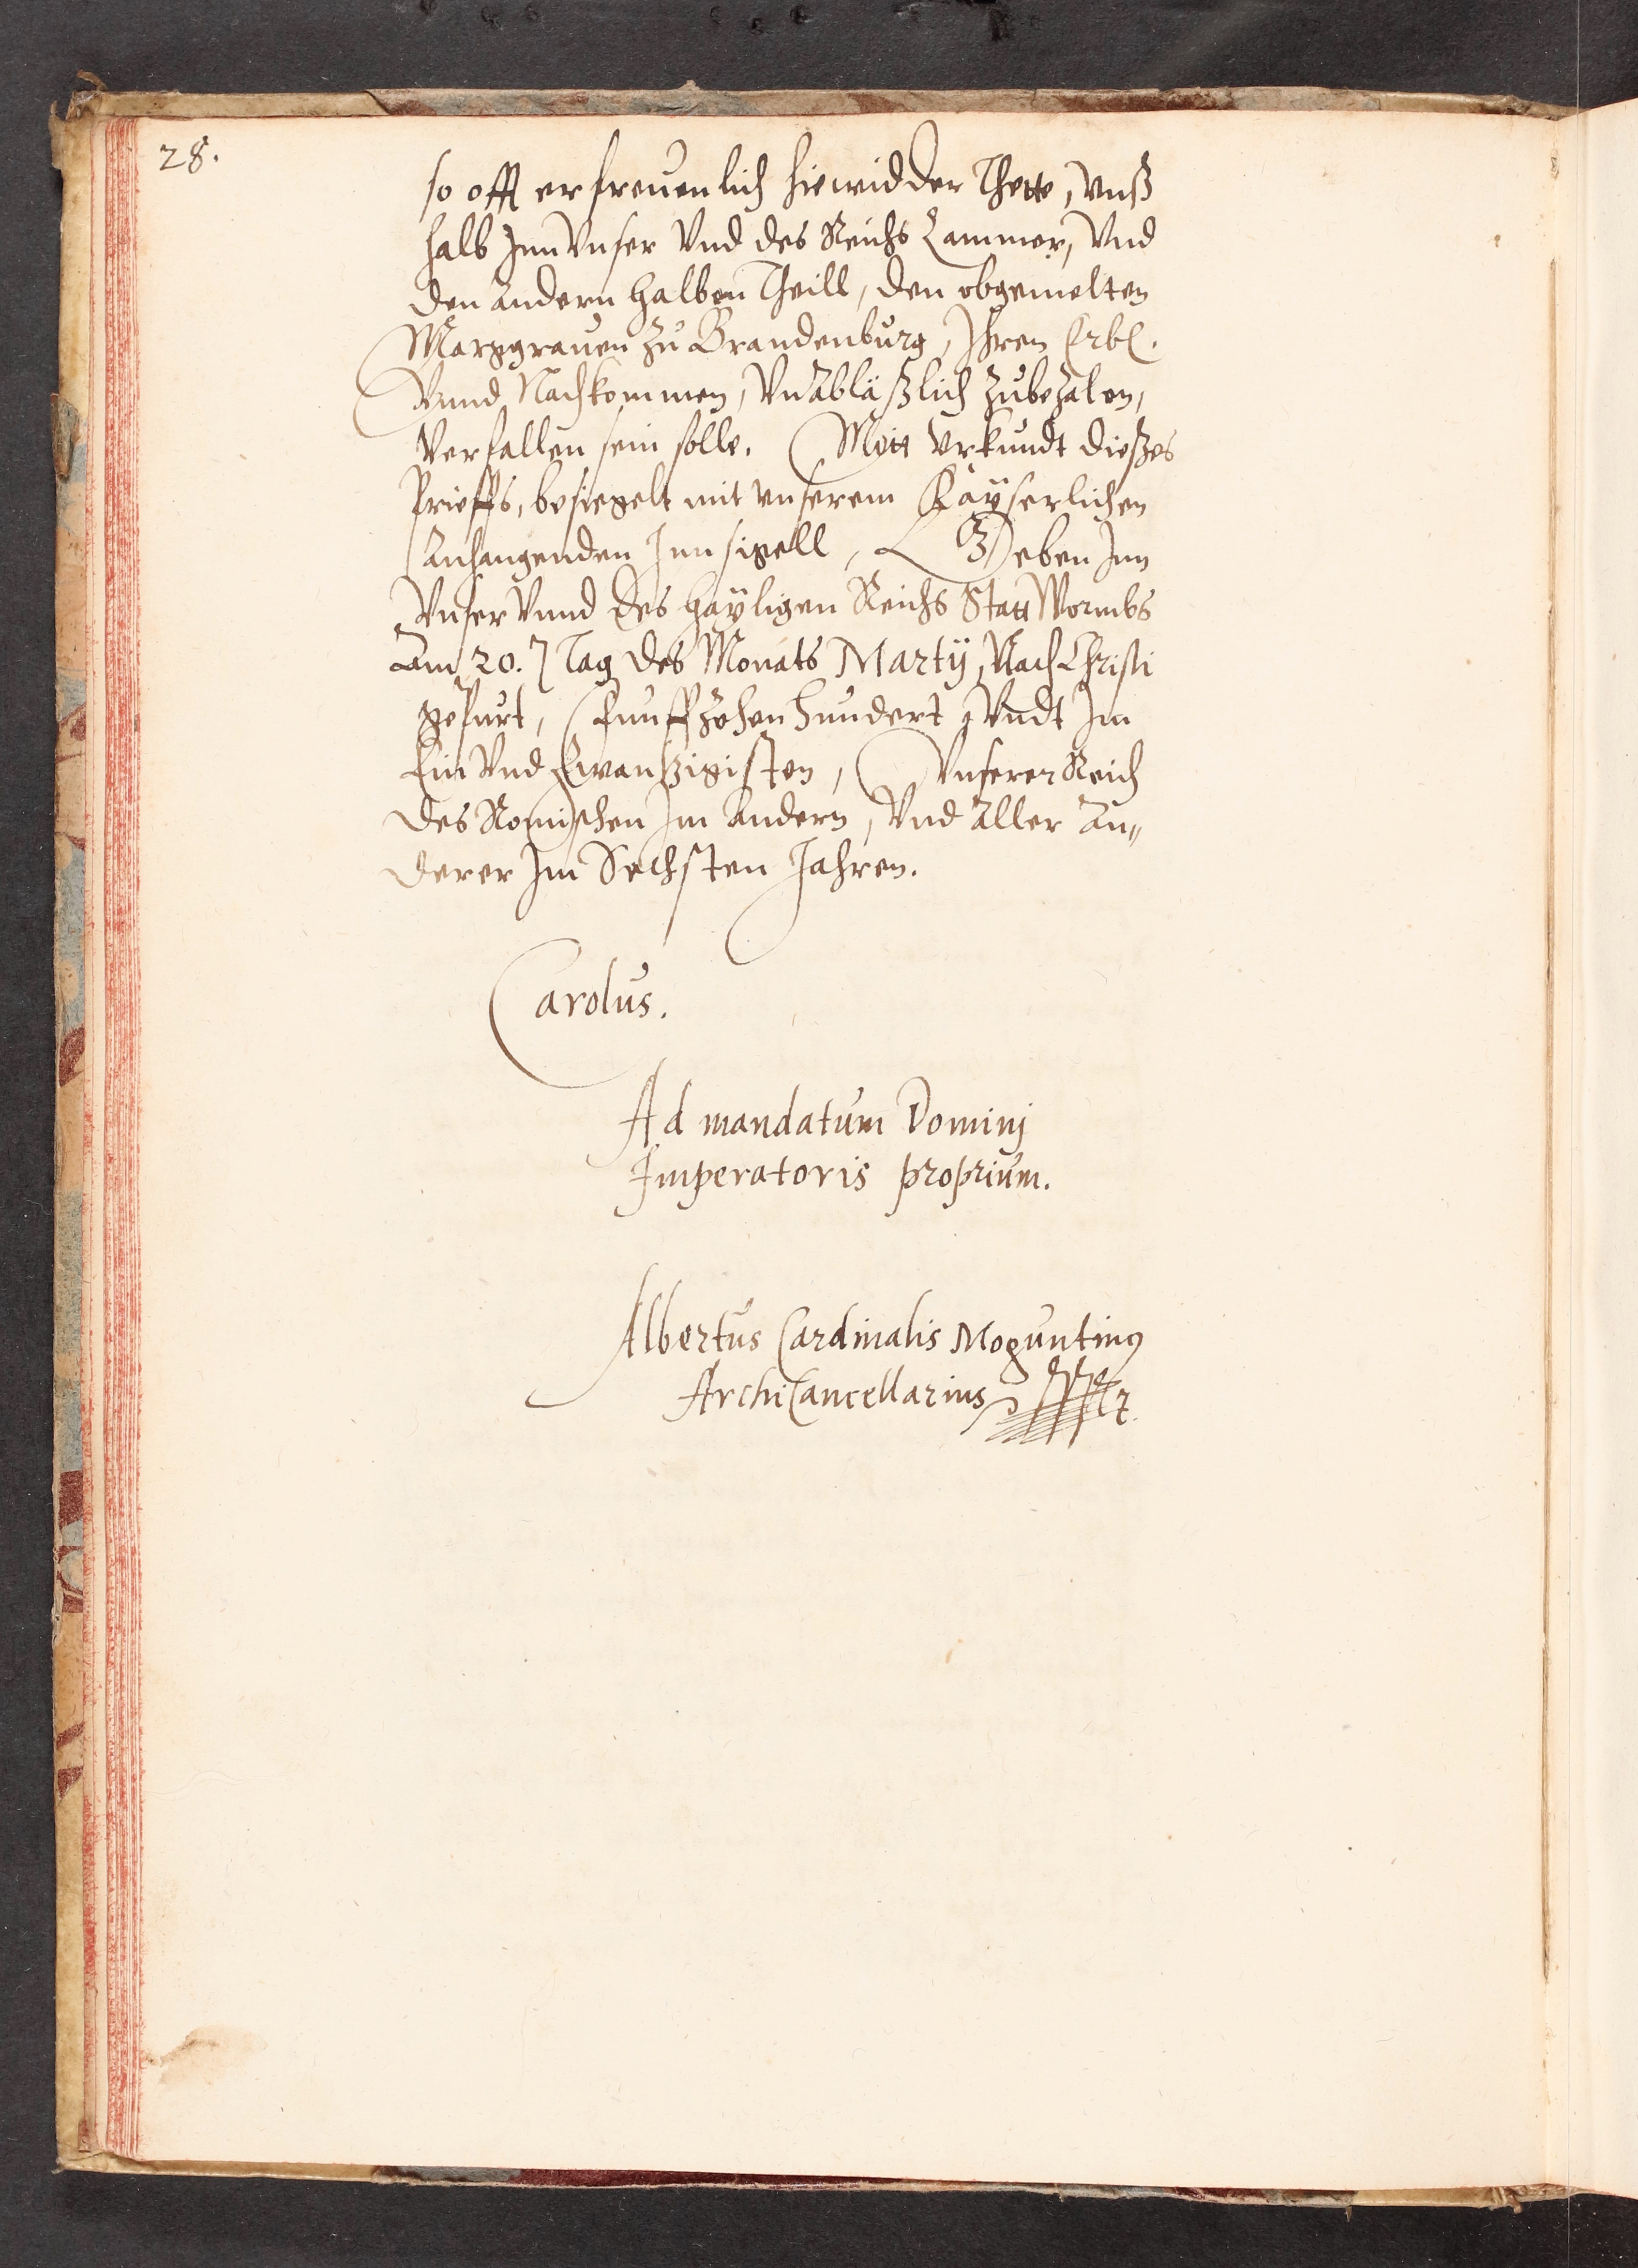 28.
so offt er freuenlich hiewidder Thette, Vnß
halb Jnn Vnser Vnd des Reichs Cammer, Vnd
den andern halben Theill, den obgemelten
Marggrauen zu Brandenburg, Jhren Erb.
Vnnd Nachkommen, Vnabläßlich zubezalen,
Verfallen sein solle. Mitt Vrkundt dießes
Brieffs, besiegelt mit vnserem Kayserlichen
Anhangenden Jnnsigell, Geben Jnn
Vnser Vnnd des hayligen Reichs Statt Wormbs
Am 20. Tag des Monats Martij, Nach Christi
gepurt, Funffzehenhundert Vndt Jm
Ein Vnd Zwantzigisten, Vnserer Reich
des Romischen Jm Andern, Vnd aller An„
derer Jm Sechsten Jahren.
Carolus.
Ad mandatum Dominj
Imperatoris proprium.
Albertus Cardinalis Moguntinus
ArchiCancellarius